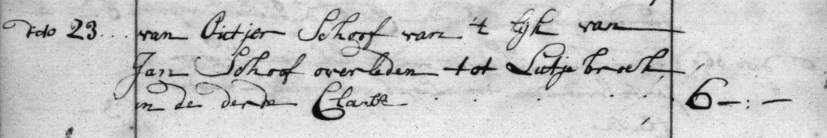 dito 23... van Pietjer Schoof van 't lijk van
Jan Schoof overleden tot Lutjebroek
in de derde Classe . . . . . 6 - : -